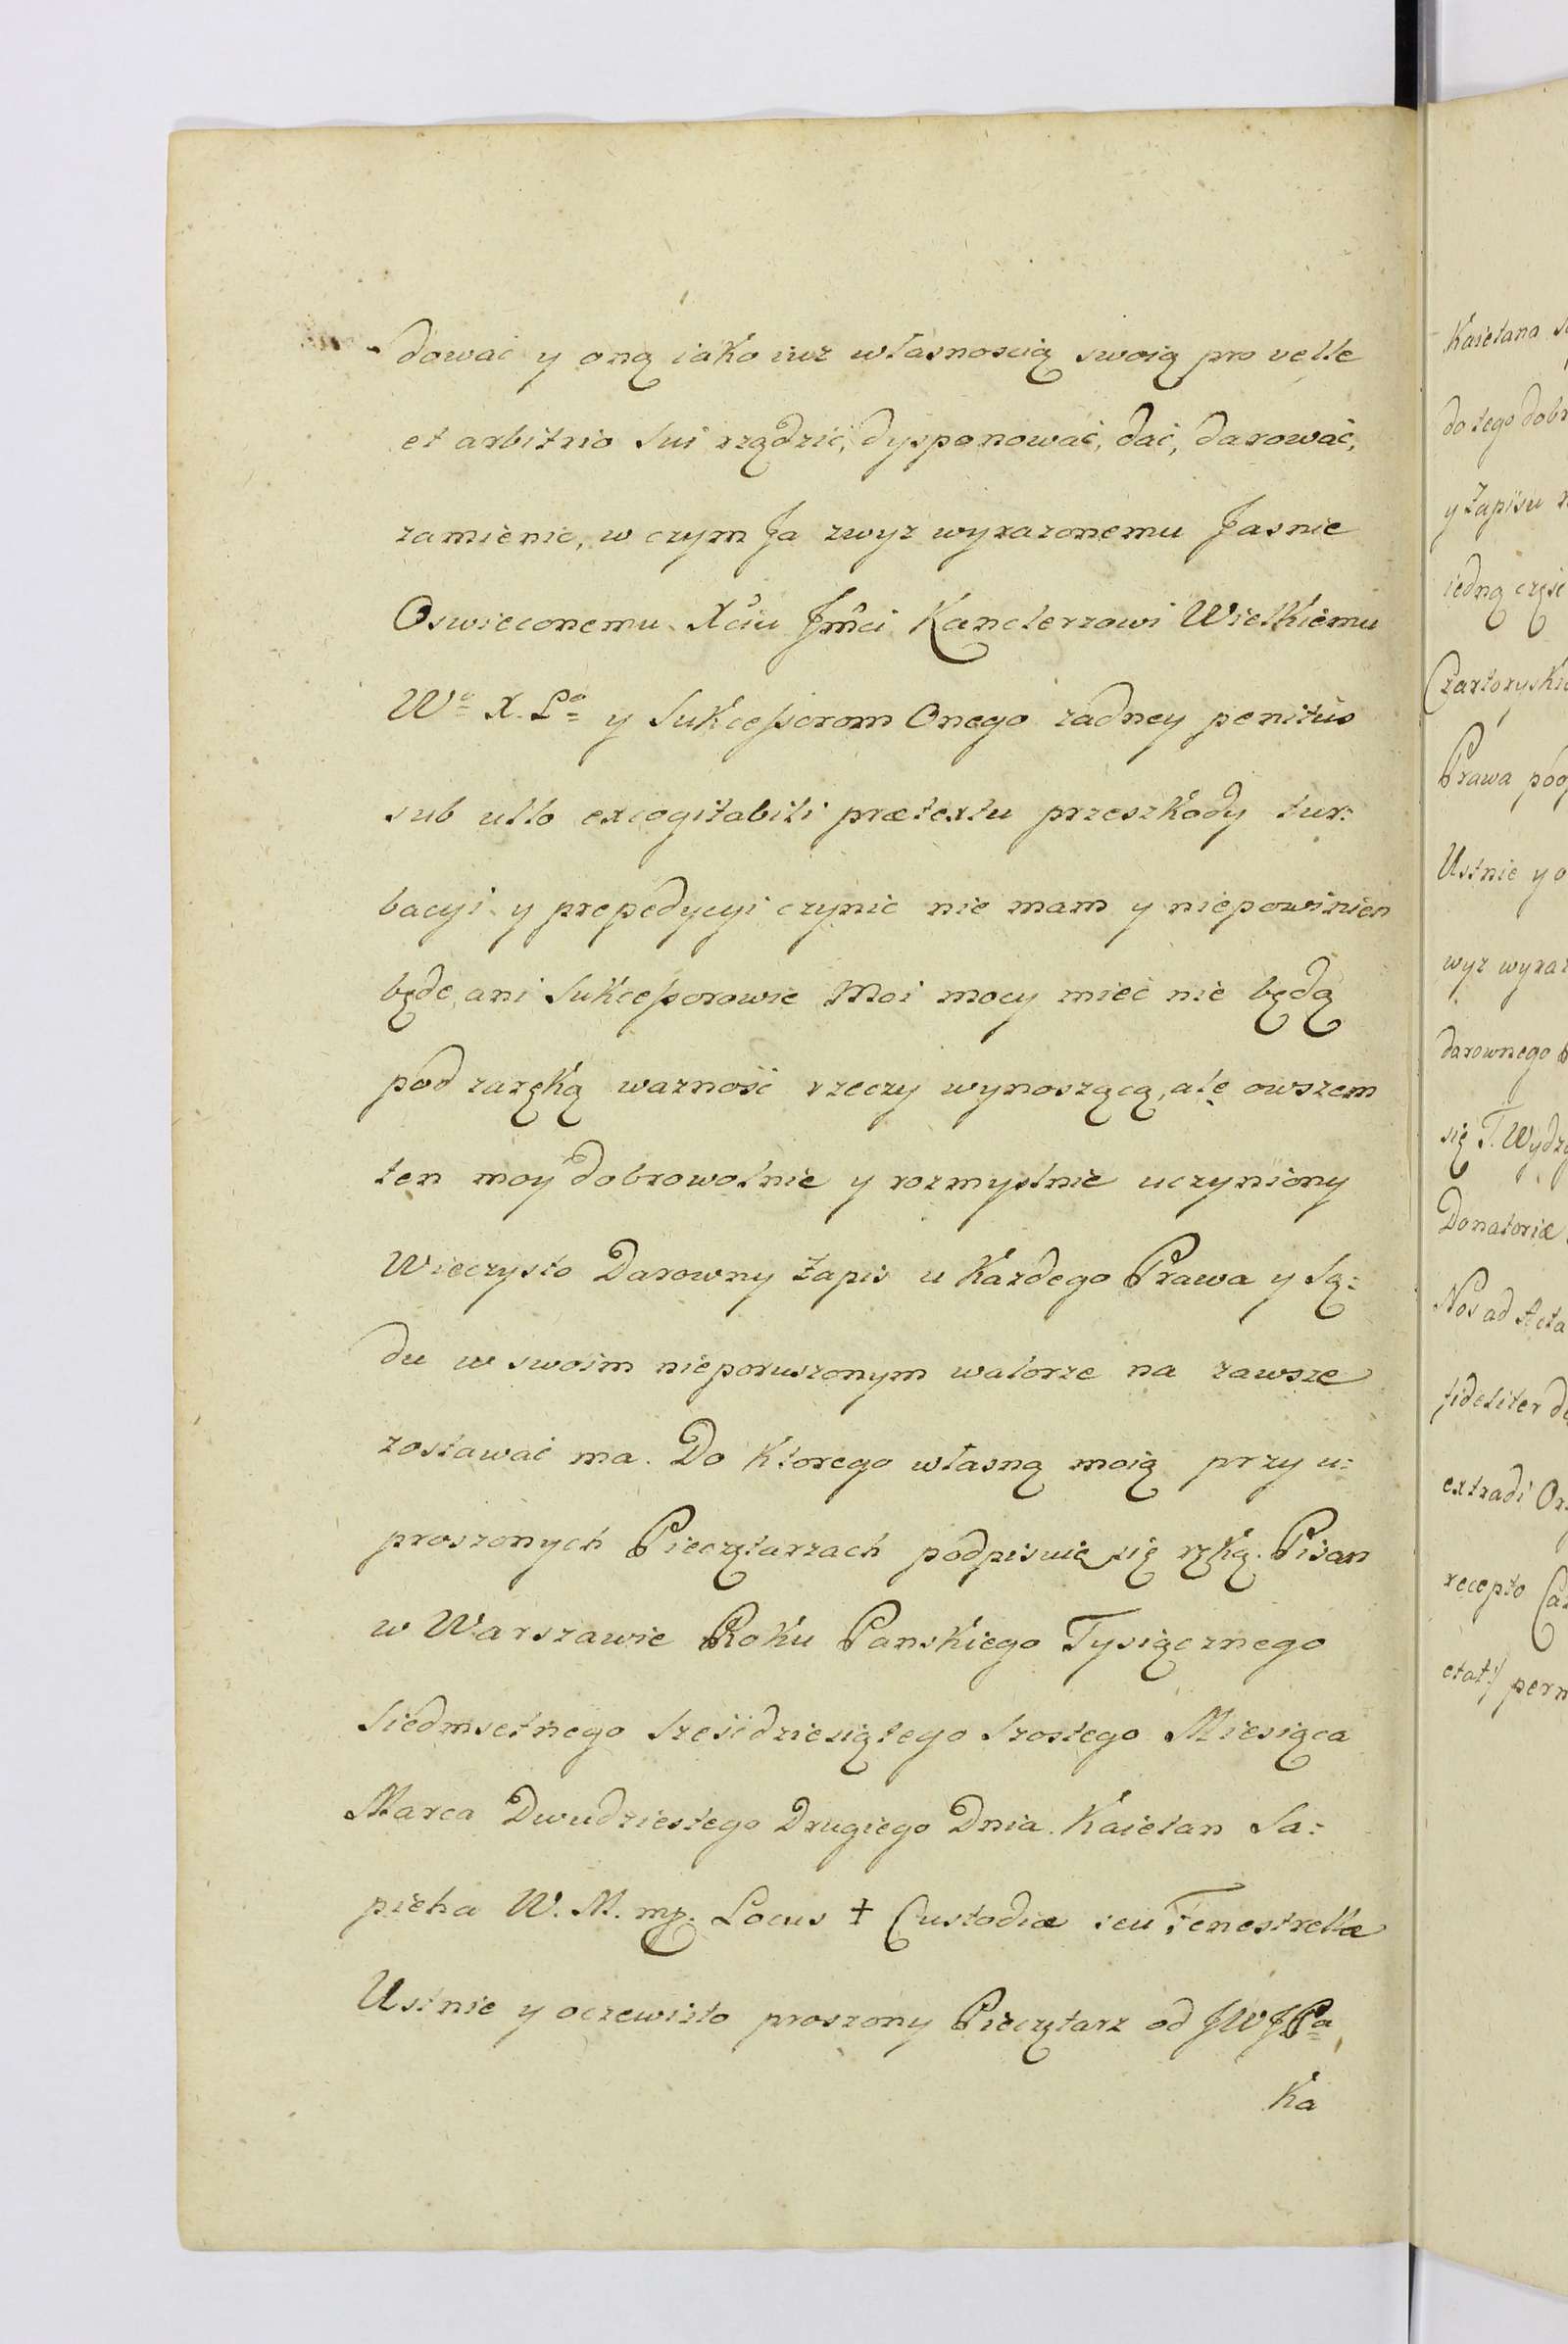 dować y oną iako iuż własnoscią swoią pro velle
et arbitrio sui rządzić, dysponować, dać, darować,
zamienic, w czym Ja zwyz wyrazonemu Jasnie
Oswieconemu Xciu Jmci Kanclerzowi Wielkiemu
Wo X. Lo y Sukcessorom Onego zadney penitus
sub ullo excogitabili prætextu przeszkody tur:
bacyi y prepedycyi czynic nie mam y niepowinien
będę, ani Sukcessorowie Moi mocy mieć nie będą
pod zaręką wazność rzeczy wynoszącą, ale owszem
ten moy dobrowolnie y rozmyslnie uczyniony
Wieczysto Darowny Zapis u Kazdego Prawa y Są:
du w swoim nieporuszonym walorze na zawsze
zostawać ma. Do Ktorego własną moią przy u:
proszonych Pieczętarzach podpisuię się ręką. Pisan
w Warszawie Roku Panskiego Tysiącznego
Siedmsetnego Sześćdziesiątego Szostego Miesiąca
Marca Dwudziestego Drugiego Dnia. Kaietan Sa:
pieha W. M. mp. Locus ✝ Custodiæ seu Fenestrellæ
Ustnie y oczewisto proszony Pieczętarz od JWJPa
Ka
Kaietana
do tego dobr
y Zapisu
iedną częsc
Czartoryski
Prawa
Ustnie y o
wyz wyraz
darownego
się T. Wydz
Donatoriæ
Nos ad Acta
fideliter
extradi
recepto
etat:/ perm